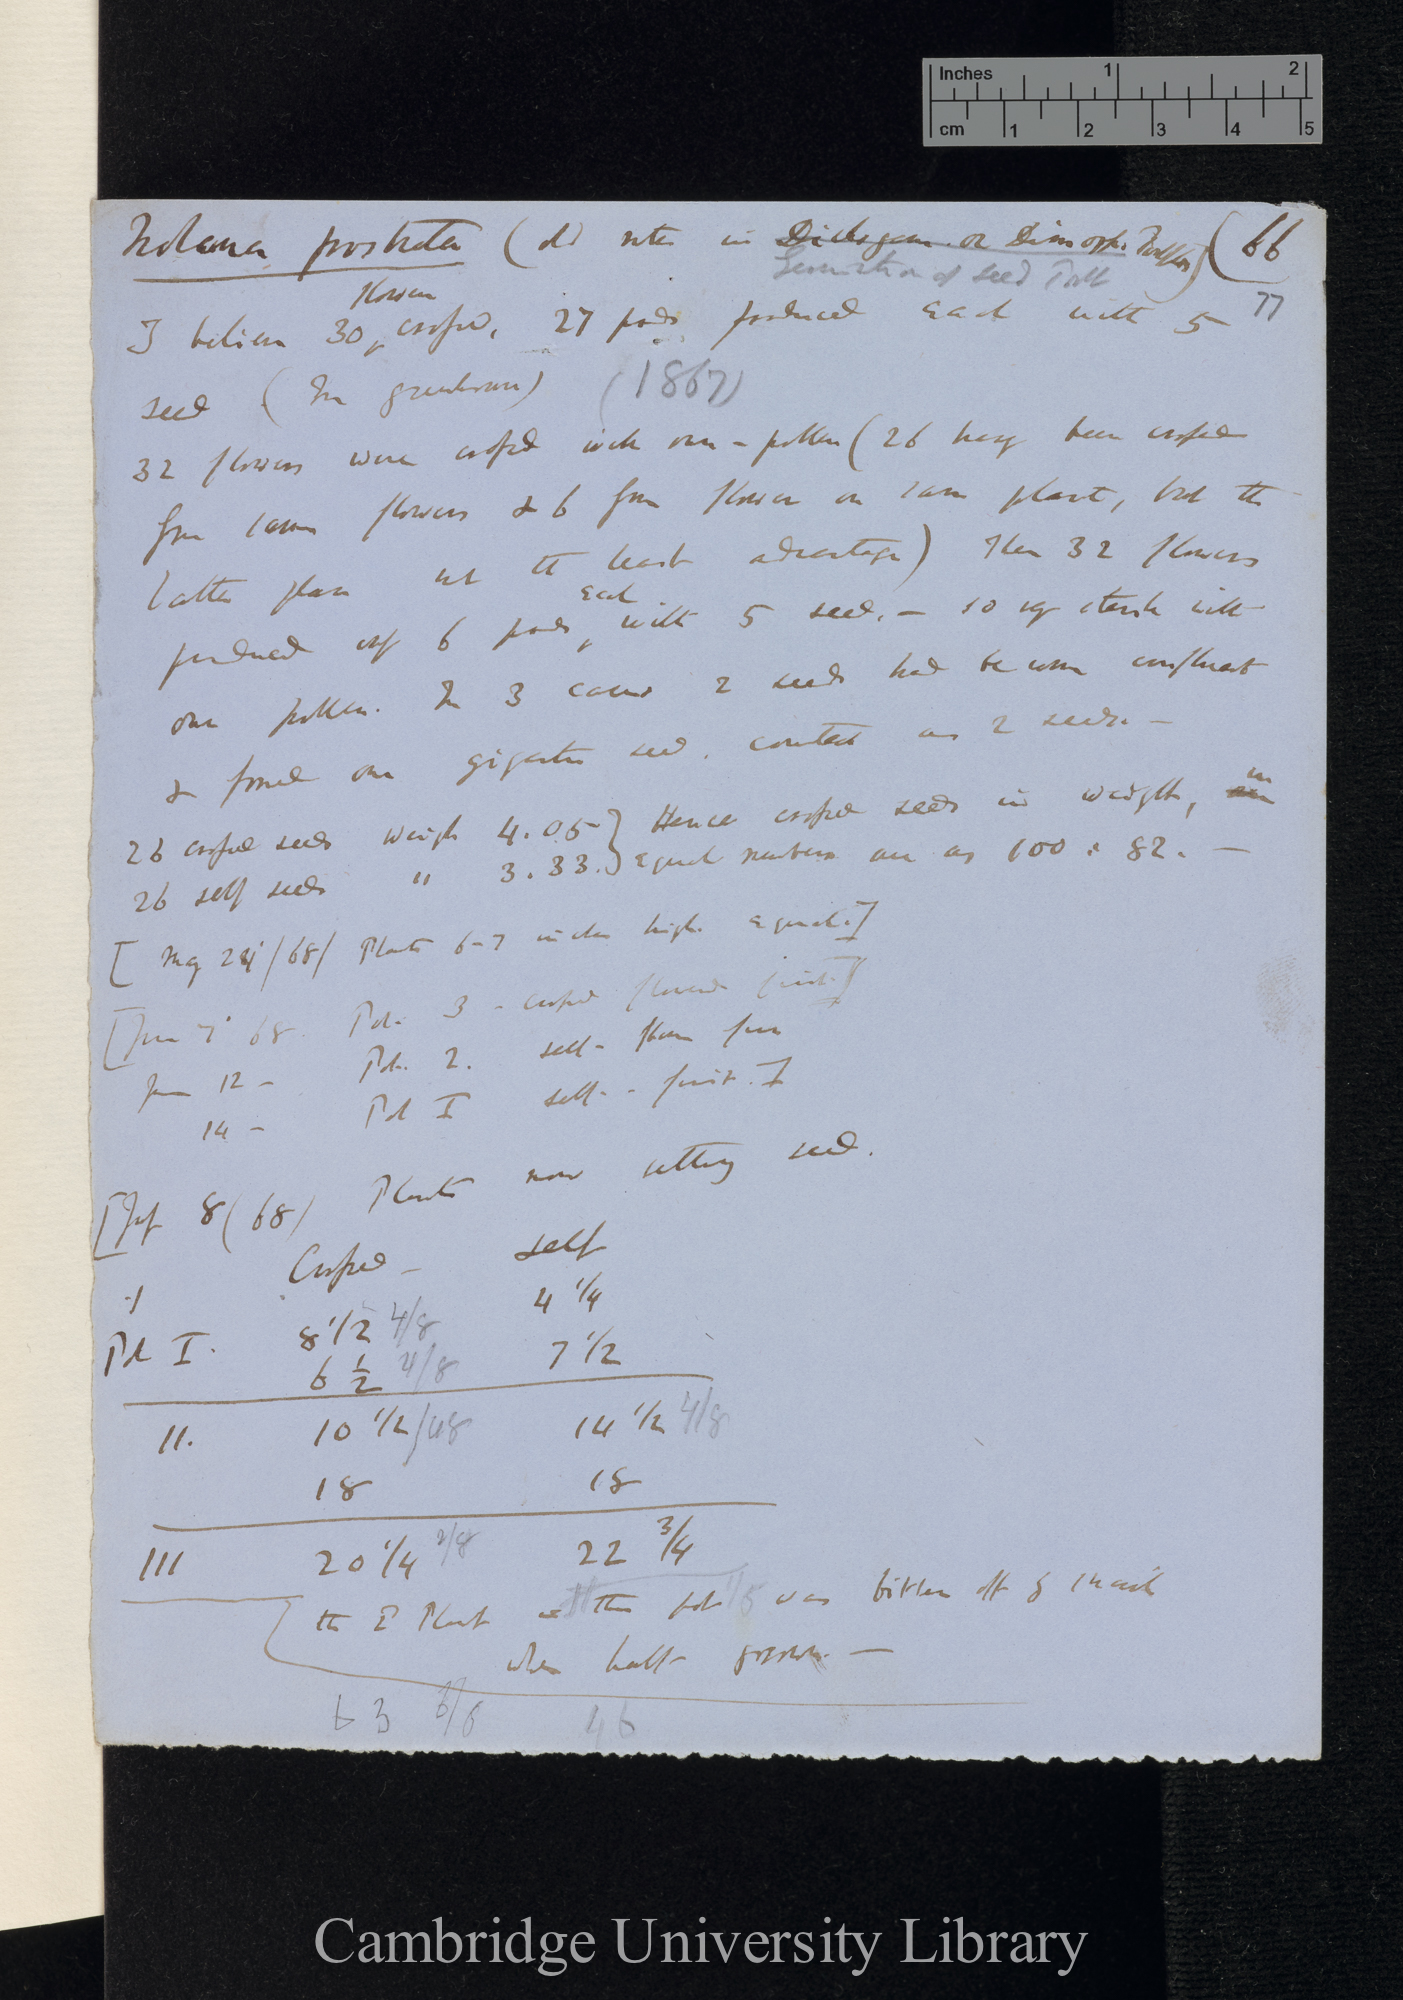 Inches 1 2
cm 1 2 3 4 5
Nolana prostrata (old notes in Dichogam. or Dimorph. Portfolio) (66
Germination of seed Portf 77
flowers
I believe 30 crossed, 27 pods produced each with 5
seed (In greenhouse) (1867)
32 flowers were crossed with own-pollen (26 having been crossed
from same flowers & 6 from flower on same plant, but the
latter plan not the least advantage) These 32 flowers
each
produced only 6 pods, with 5 seed. — so very sterile with
own pollen. In 3 cases 2 seeds had become confluent
& formed one gigantic seed. counted as 2 seeds. —
in
26 crossed seeds weigh 4.05 } Hence crossed seeds in weight,
26 self seeds " 3.33. } equal numbers are as 100 : 82. —
[May 24/68/ Plants 6-7 inches high. equal.]
[June 7' 68. Pot. 3 - crossed flowered first.]
June 12 - Pot. 2. self- flower first
14 - Pot I self- - first.]
8 (68) Plants now setting seed.
Crossed - self
Pot I. 8 1/2 4/8 4 1/4
6 1/2 4/8 7 1/2
II. 10 1/2 /48 14 1/2 4/8
18 18
III 20 1/4 2/8 22 3/4
the 2d Plant in this pot was bitten off by snail
when half-grown. —
63 46
Cambridge University Library